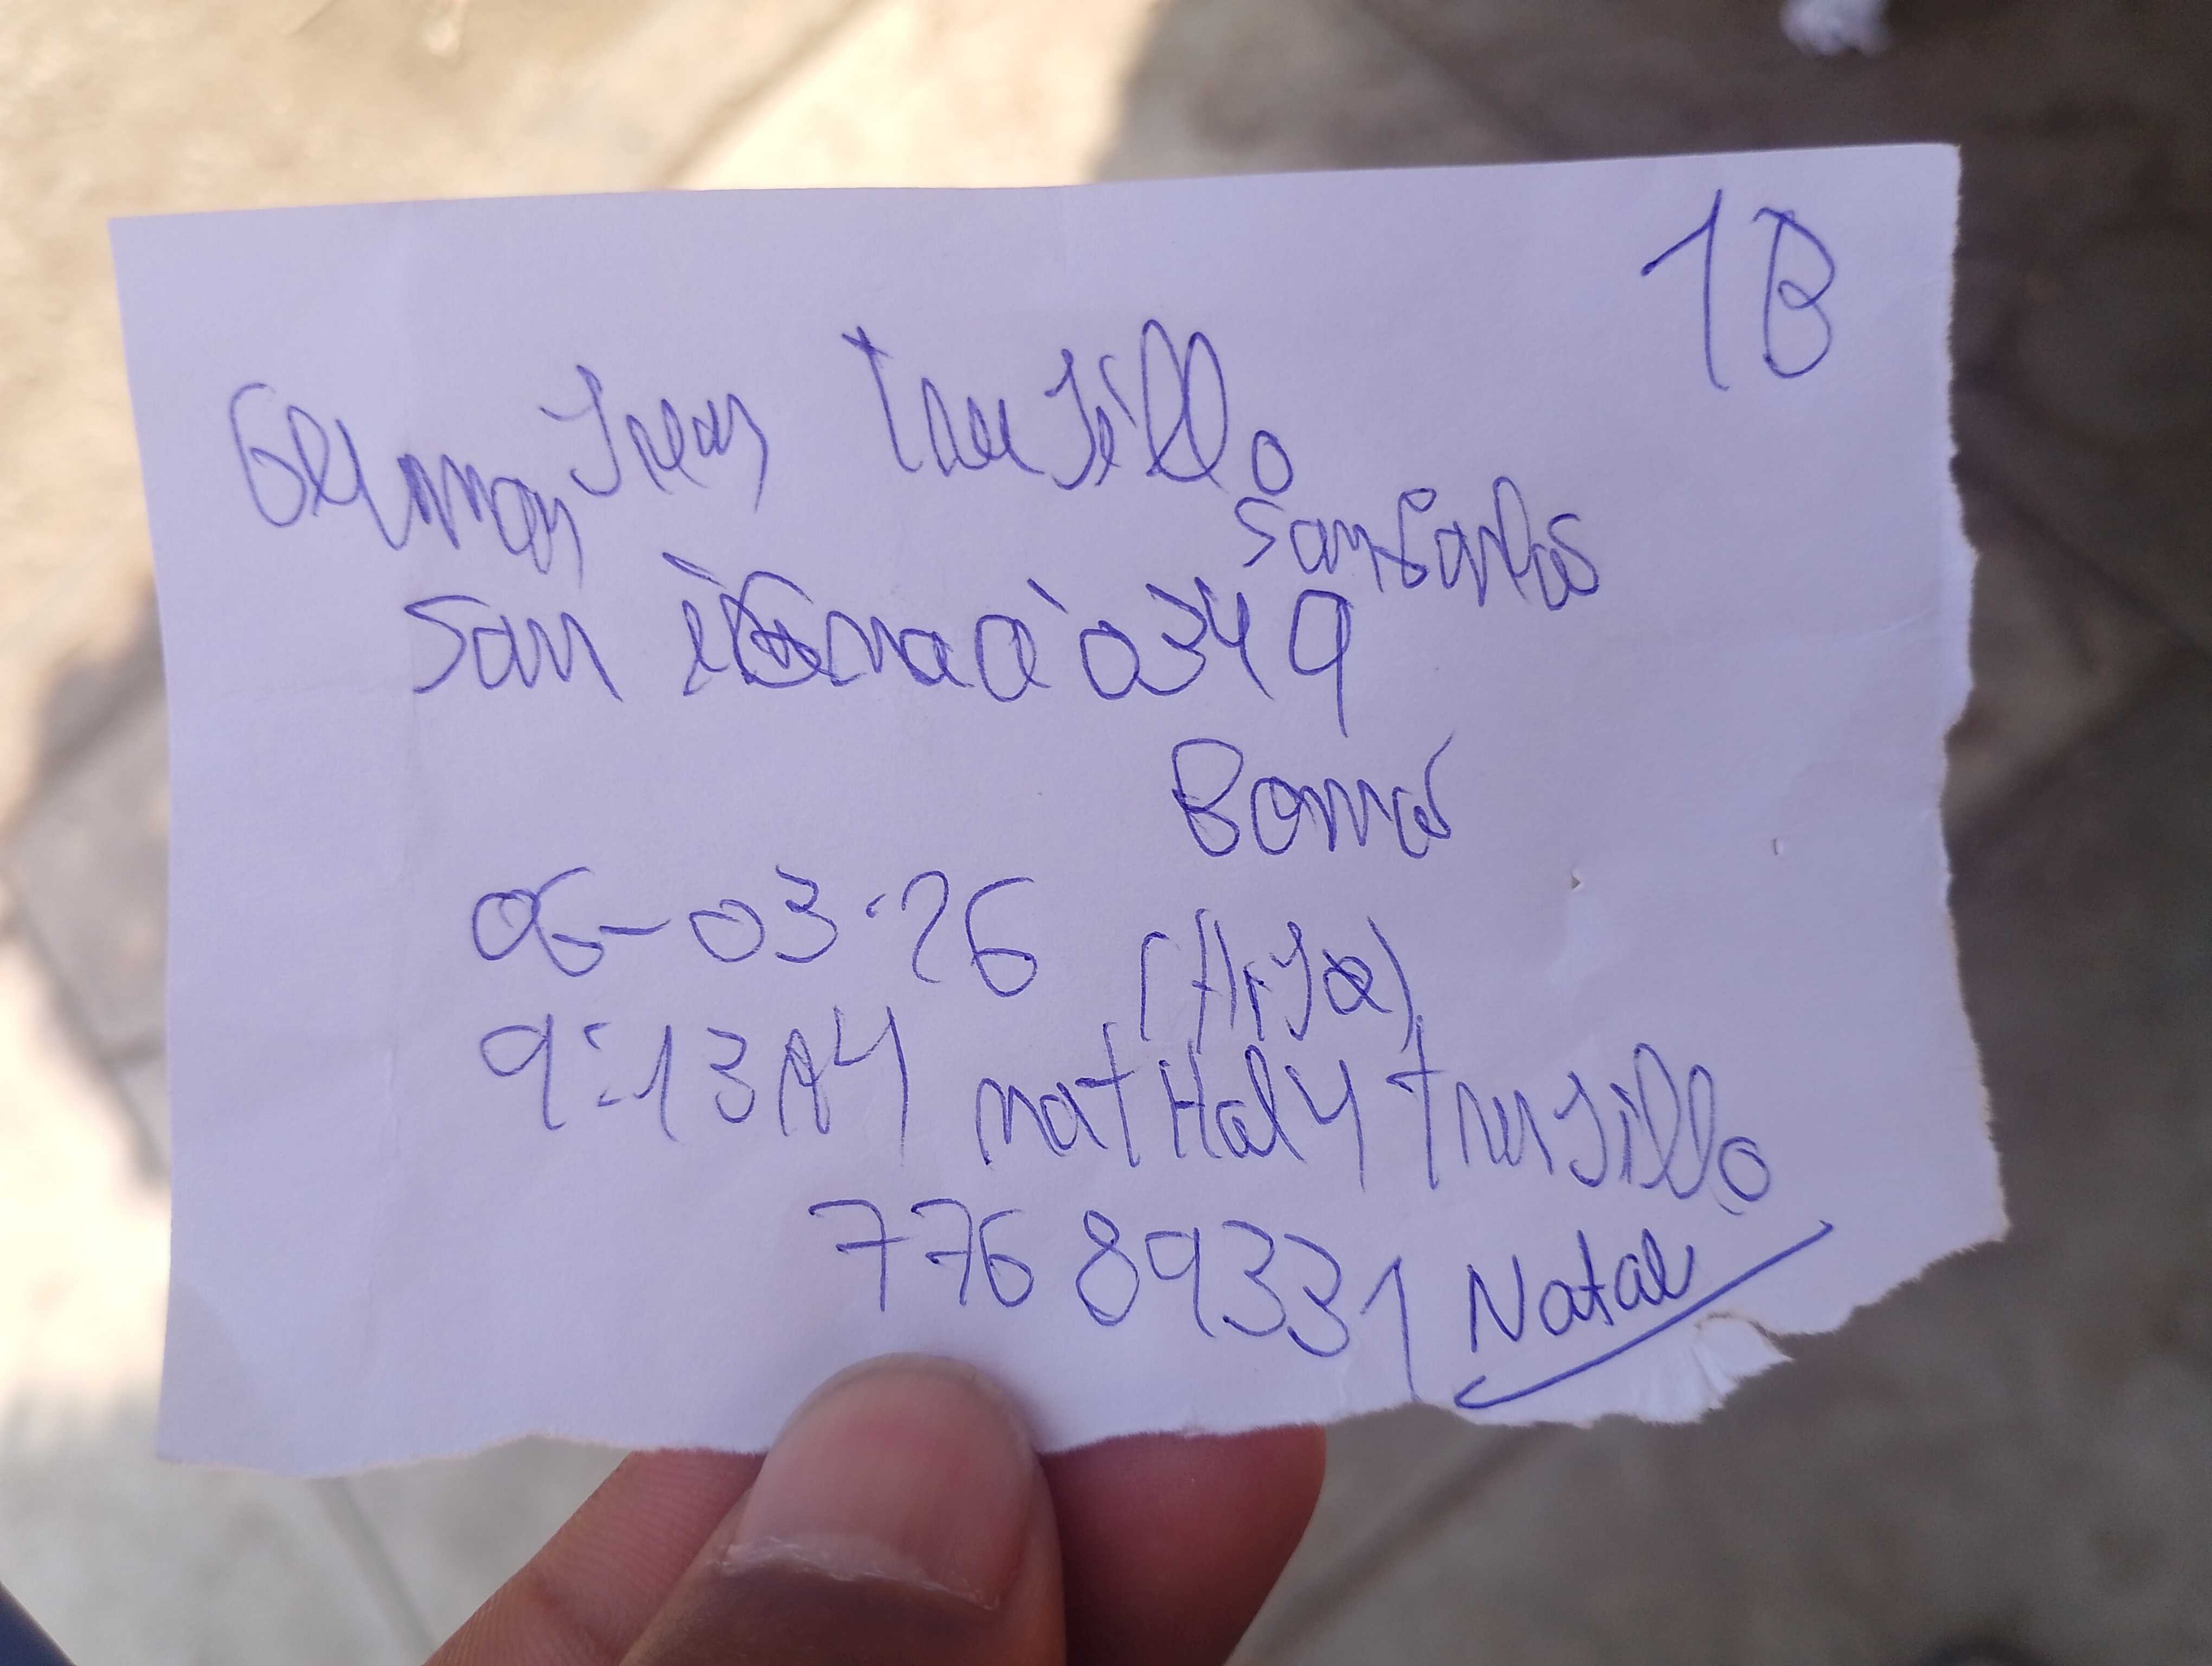 1B
German Juan Trujillo
San Carlos
San 0349
Boma
06-03-26
(Hija)
9:13 AM natHaly trujillo
77689331 Natal